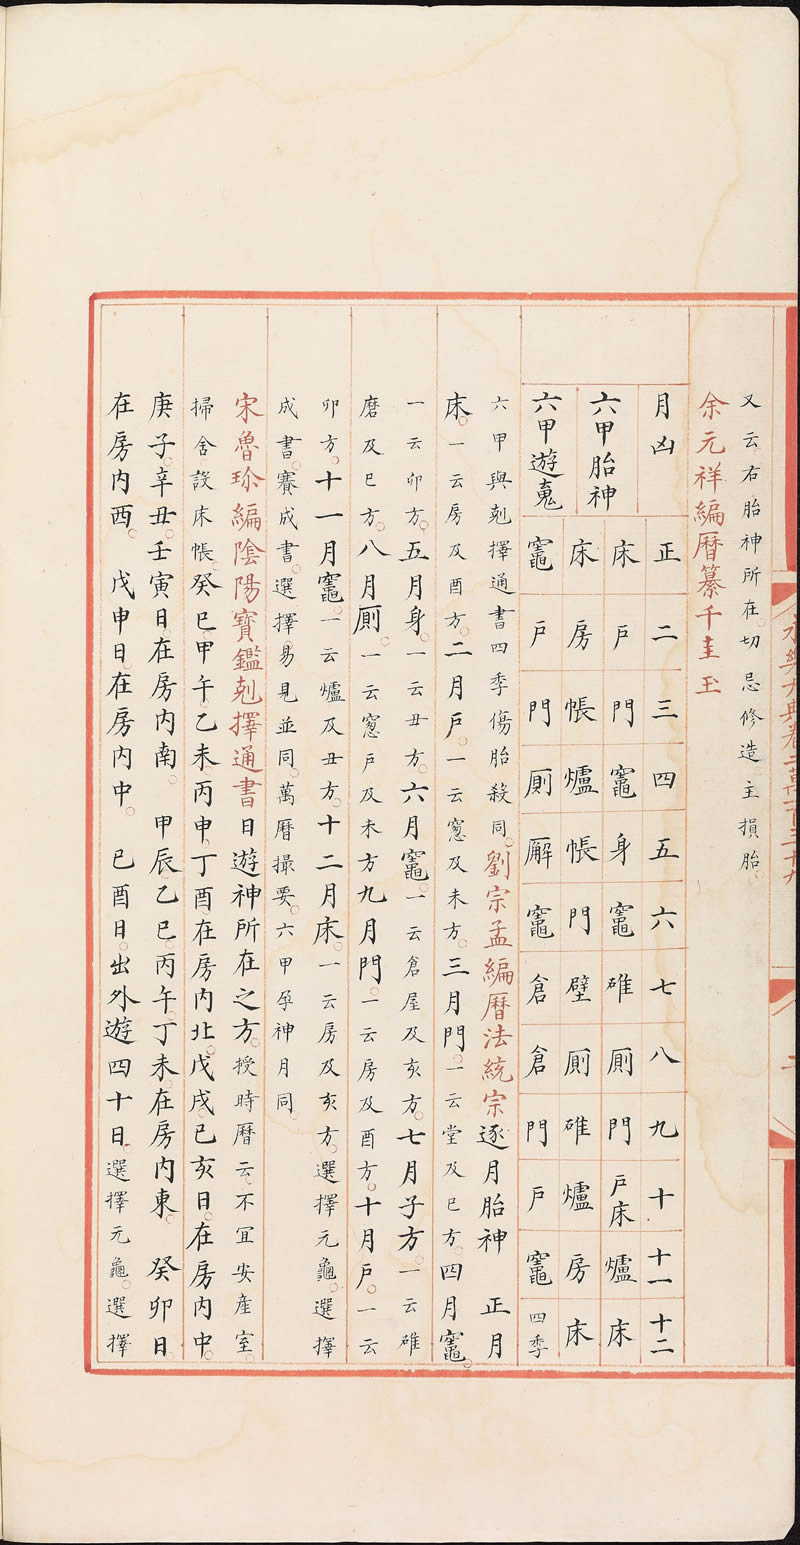 永樂大典卷
又云右胎神所在。切忌修造。主損胎。
余元祥編曆纂千圭玉
月凶 正 二 三 四 五 六 七 八 九 十 十一 十二
六甲胎神 床 戶 門 竈 身 竈 碓 厠 門 戶床 爐 床
床 房 帳 爐 帳 門 壁 厠 碓 爐 房 床
六甲遊䰟 竈 戶 門 厠 廨 竈 倉 倉 門 戶 竈 四季
六甲與剋擇通書四季傷胎殺同。劉宗孟編曆法統宗逐月胎神 正月
床。一云房及酉方。二月戶。一云窻及未方。三月門。一云堂及巳方。四月竈。
一云卯方。五月身。一云丑方。六月竈。一云倉屋及亥方。七月子方。一云碓
磨及巳方。八月厠。一云窻戶及未方九月門。一云房及酉方。十月戶。一云
卯方。十一月竈。一云爐及丑方。十二月床。一云房及亥方。選擇元龜。選擇
成書。賽成書。選擇易見並同。萬曆撮要。六甲孕神月同。
宋魯珍編陰陽寶鑑剋擇通書日遊神所在之方。授時曆云。不宜安產室。
掃舍設床帳。癸巳。甲午。乙未。丙申。丁酉。在房内北。戊戌。己亥日。在房内中。
庚子。辛丑。壬寅日。在房内南。 甲辰。乙巳。丙午。丁未。在房内東。 癸卯日。
在房内西。 戊申日。在房内中。 己酉日。出外遊四十日。選擇元龜。選擇